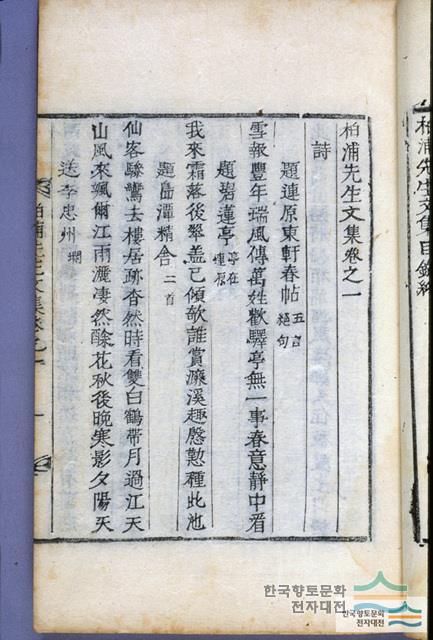 柏浦先生文集卷之一
詩
題連原東軒春帖 五言絕句
雪報豐年瑞風傳萬姓歡驛亭無一事春意靜中看
題碧蓮亭 亭在連原
我來霜落後翠盖已傾欹誰賞濂溪趣慇懃種此池
題島潭精舍 二首
仙客驂鸞去樓居跡杳然時看雙白鶴帶月過江天
山風來颯爾江雨灑凄然酴花秋後晩寒影夕陽天
送李忠州
柏浦先生文集卷之一
柏浦先生文集目錄終
한국향토문화
전자대전
한국향토문화
전자대전